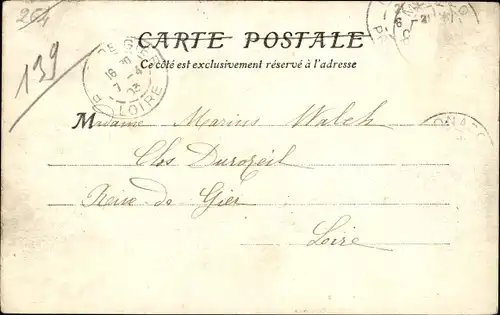 264
139
CARTE POSTALE
Ce côté est exclusivement réservé à l'adresse
LOIRE
Madame Marius Walch
Chs Durozeil
Rive de Gier
Loire